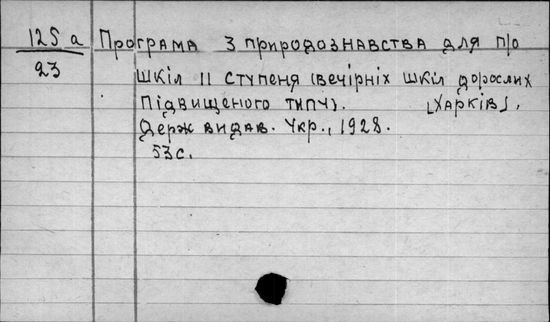 125а Програма з природознавства для п/о
23
шкіл II ступеня (вечірніх шкіл дорослих
підвищеного типу). [Харків],
Держ видав. Укр., 1928.
53с.